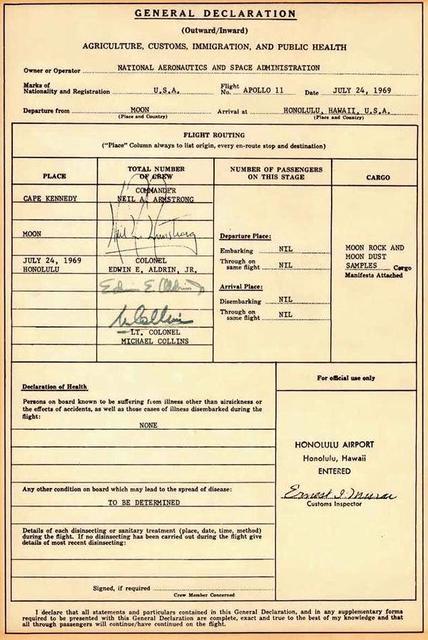 GENERAL DECLARATION
(Outward/Inward)
AGRICULTURE, CUSTOMS, IMMIGRATION, AND PUBLIC HEALTH
Owner or Operator NATIONAL AERONAUTICS AND SPACE ADMINISTRATION
Marks of Nationality and Registration U.S.A. Flight No. APOLLO 11 Date JULY 24, 1969
Departure from MOON Arrival at HONOLULU, HAWAII, U.S.A.
(Place and Country) (Place and Country)
FLIGHT ROUTING
("Place" Column always to list origin, every en-route stop and destination)
PLACE
TOTAL NUMBER OF CREW
NUMBER OF PASSENGERS ON THIS STAGE
CARGO
CAPE KENNEDY
MOON
JULY 24, 1969
HONOLULU
COMMANDER
NEIL A. ARMSTRONG
Neil A. Armstrong
COLONEL
EDWIN E. ALDRIN, JR.
Edwin E. Aldrin
M Collins
LT. COLONEL
MICHAEL COLLINS
Departure Place:
Embarking NIL
Through on same flight NIL
Arrival Place:
Disembarking NIL
Through on same flight NIL
MOON ROCK AND
MOON DUST
SAMPLES Cargo
Manifests Attached
Declaration of Health
Persons on board known to be suffering from illness other than airsickness or
the effects of accidents, as well as those cases of illness disembarked during the
flight:
NONE
Any other condition on board which may lead to the spread of disease:
TO BE DETERMINED
Details of each disinsecting or sanitary treatment (place, date, time, method)
during the flight. If no disinsecting has been carried out during the flight give
details of most recent disinsecting:
Signed, if required
Crew Member Concerned
For official use only
HONOLULU AIRPORT
Honolulu, Hawaii
ENTERED
Ernest I. Murai
Customs Inspector
I declare that all statements and particulars contained in this General Declaration, and in any supplementary forms
required to be presented with this General Declaration are complete, exact and true to the best of my knowledge and that
all through passengers will continue/have continued on the flight.